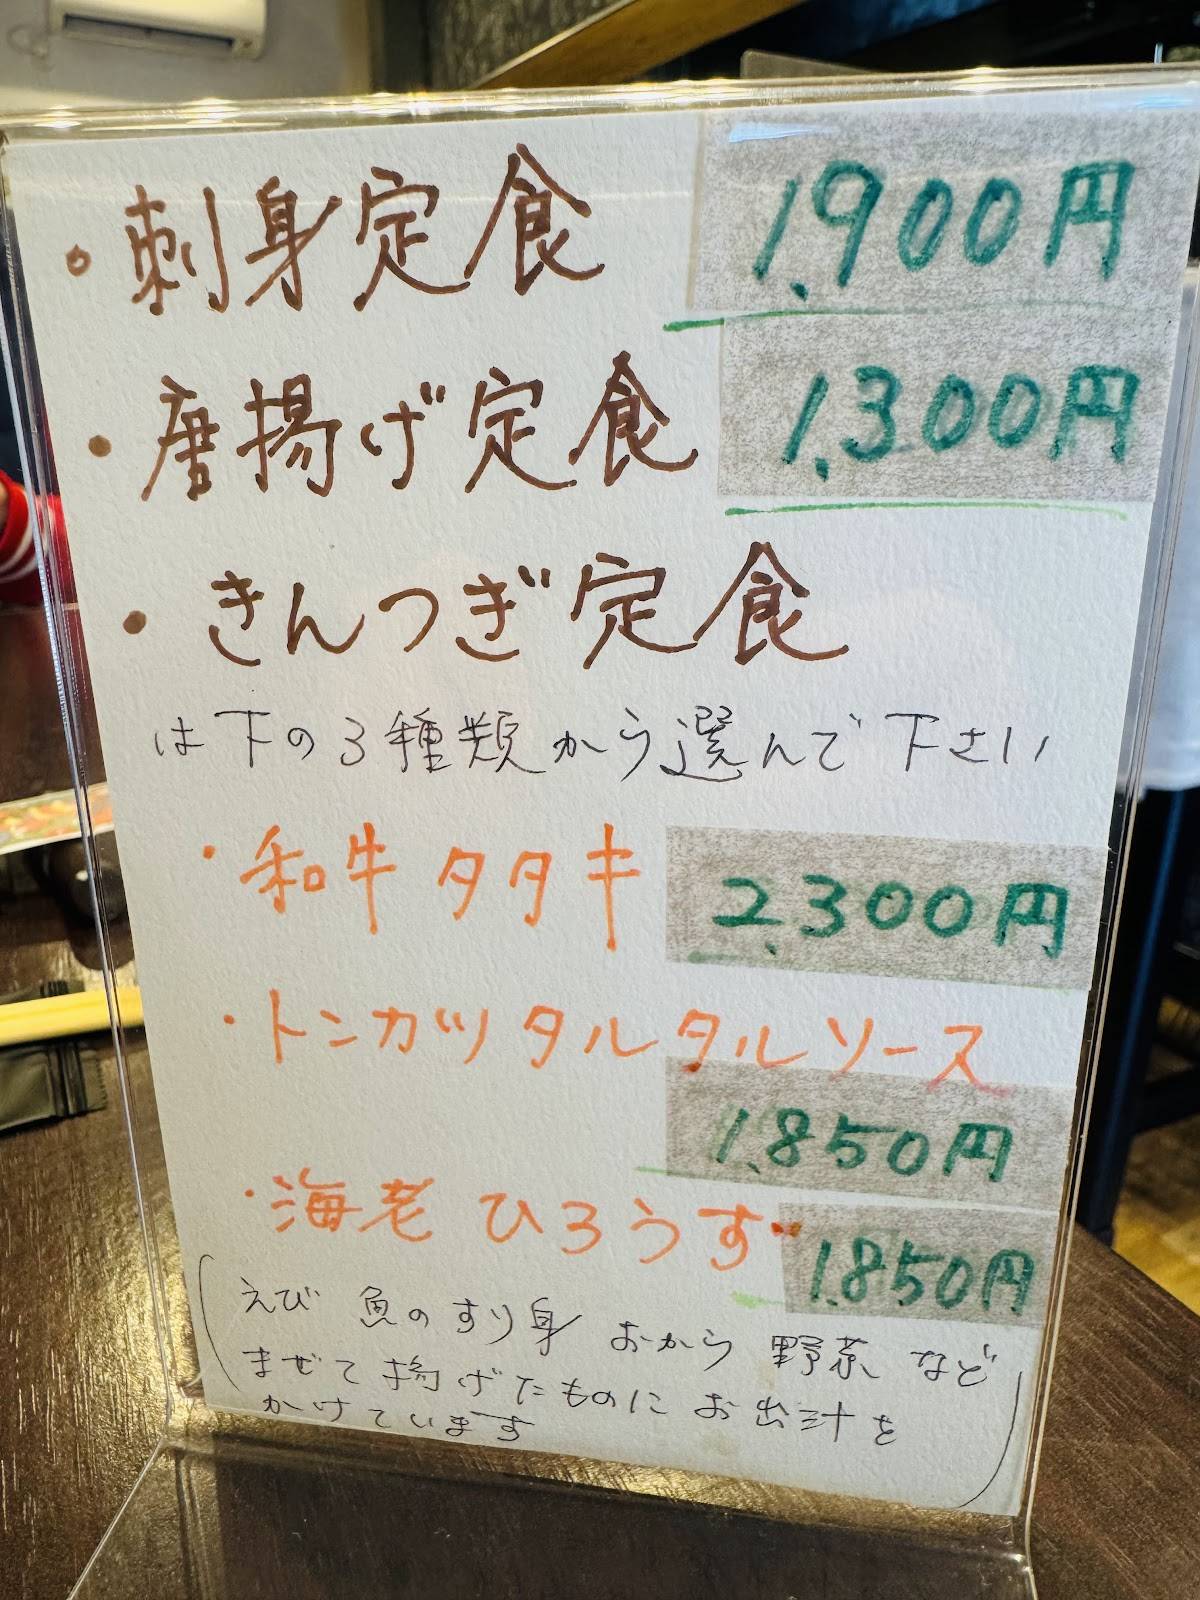 ・刺身定食 1,900円
・唐揚げ定食 1,300円
・きんつぎ定食
は下の3種類から選んで下さい
・和牛タタキ 2,300円
・トンカツタルタルソース
1,850円
・海老ひろうす 1,850円
(えび 魚のすり身 おから 野菜 など
まぜて揚げたものにお出汁を
かけています)